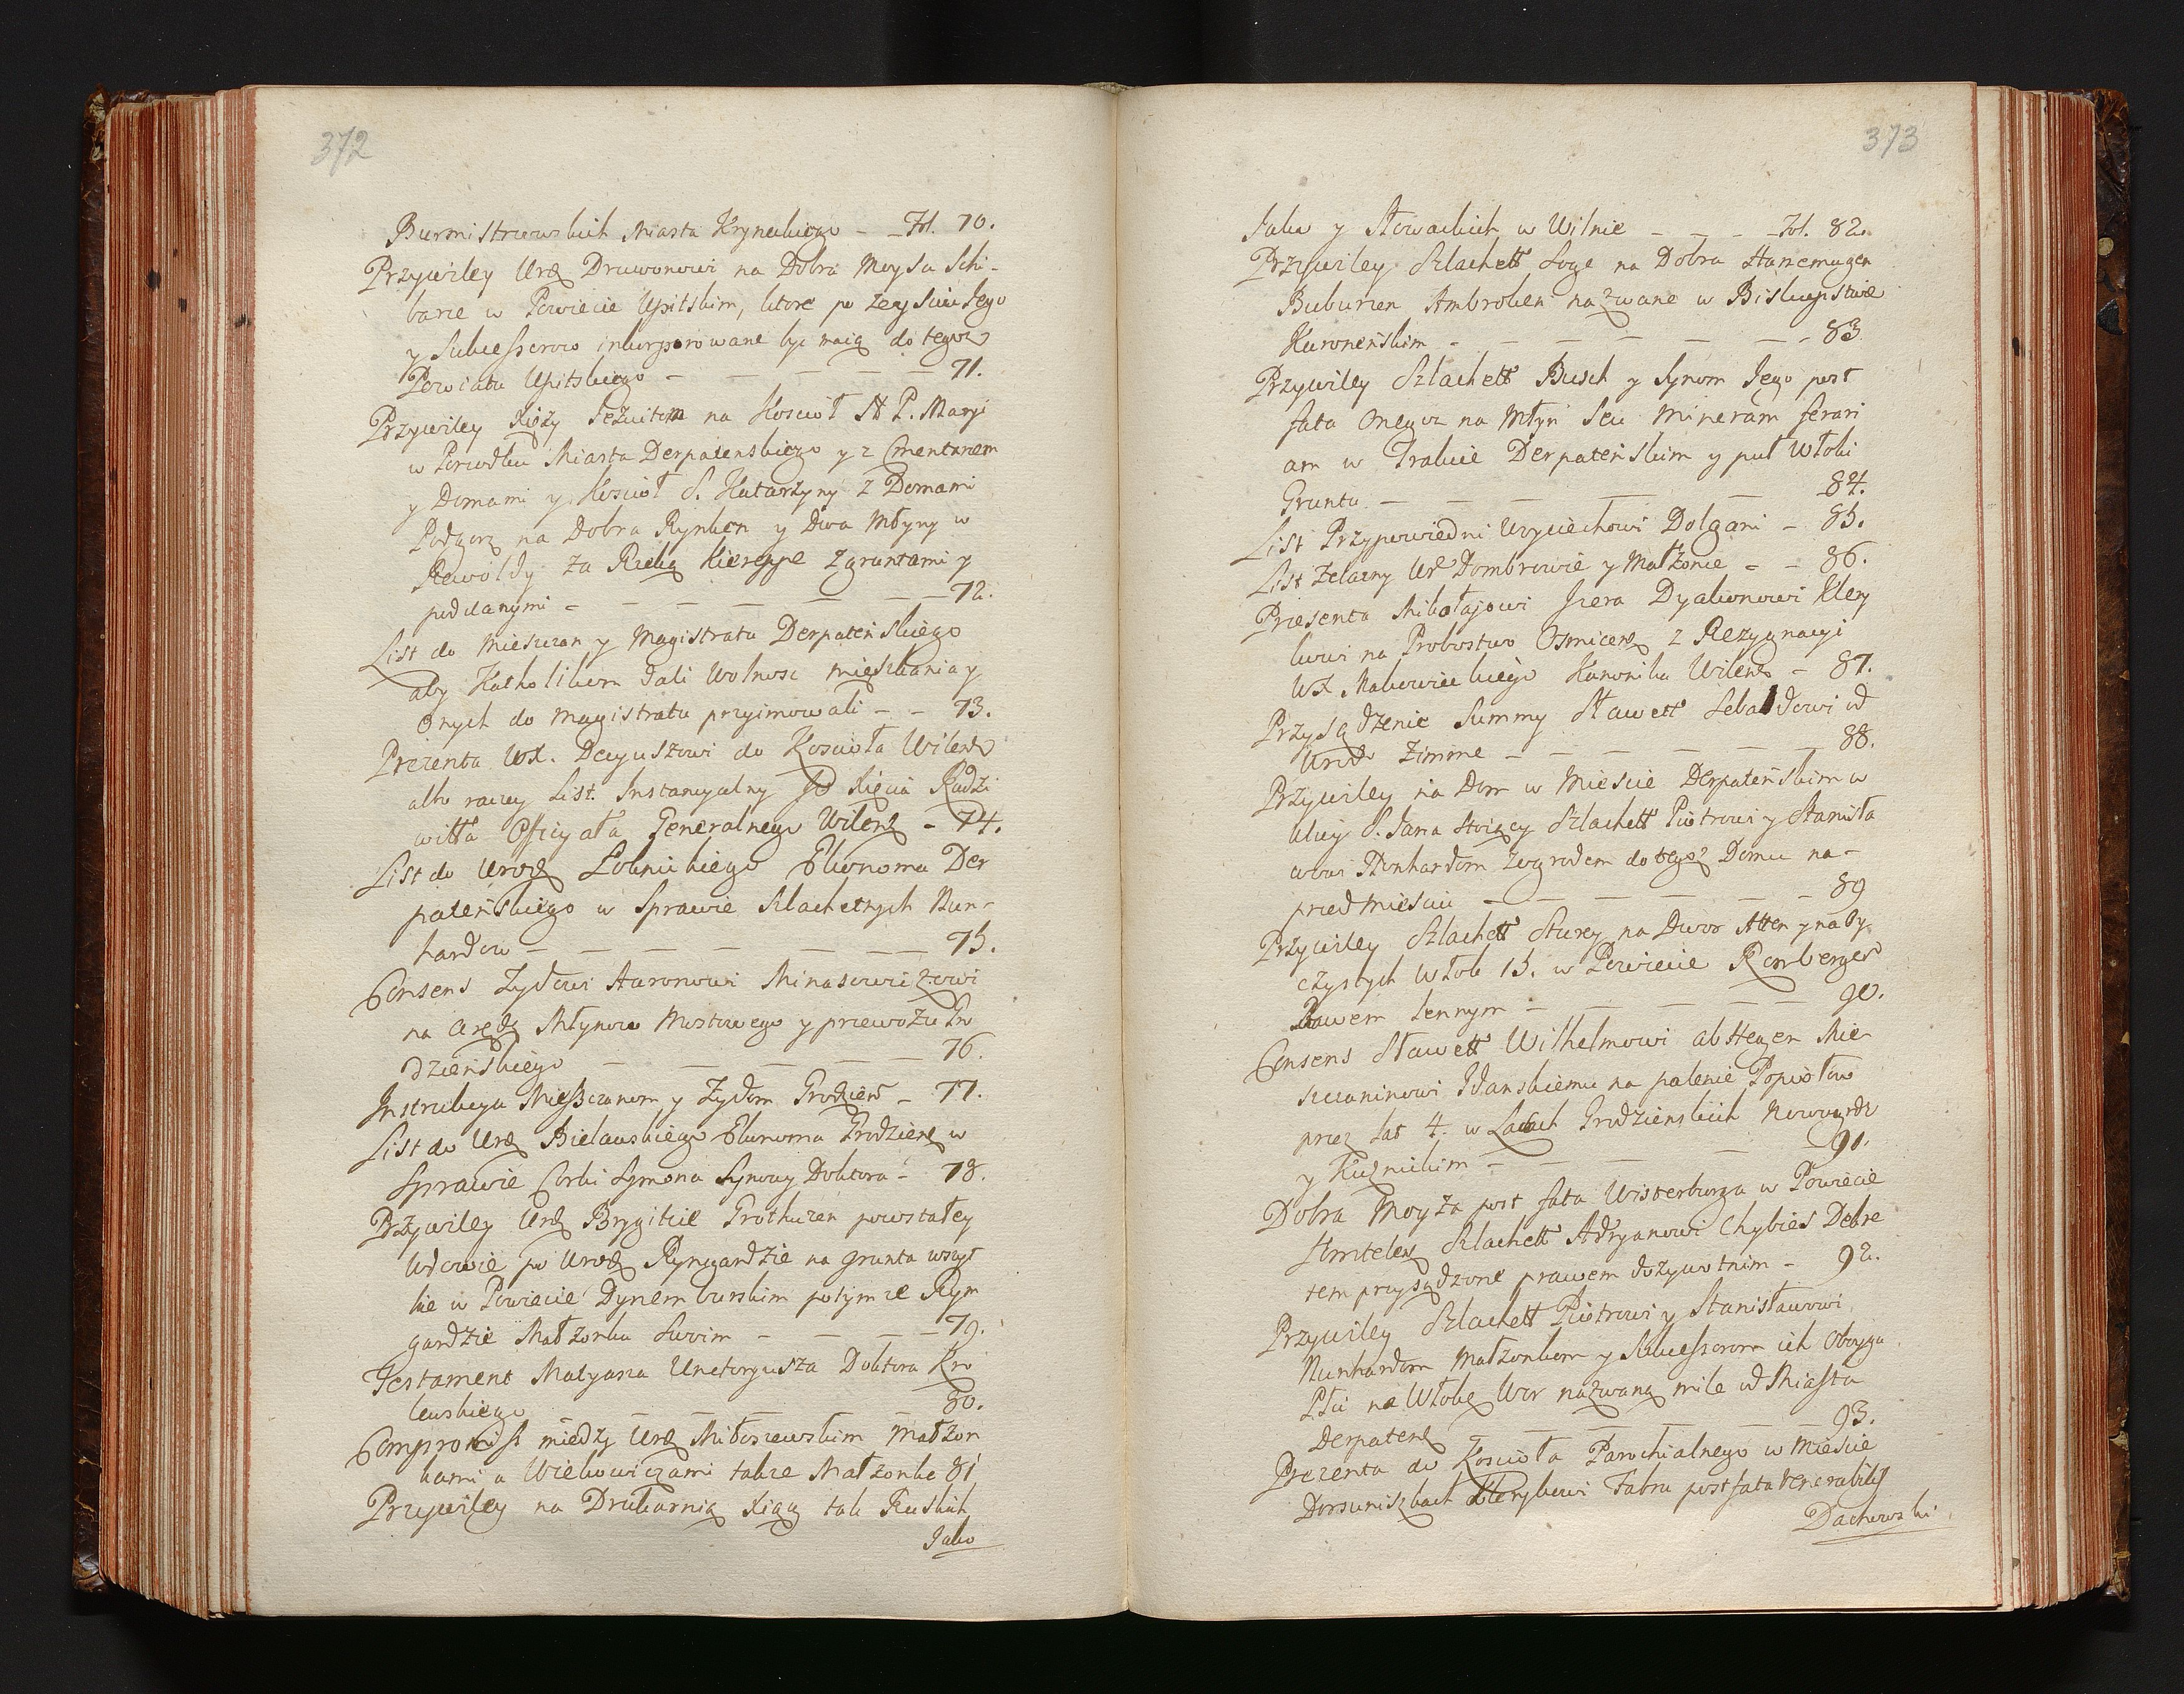 372
Burmistrzowskich Miasta Krynckiego - - Fol. 70.
Przywiley Urz Druwonowi na Dobra Moysa Schi-
barze w Powiecie Upitskim, ktore po zeysciu Jego
y Sukcessorow inkorporowane byc maią do tegoż
Powiatu Upitskiego - - - - - - 71.
Przywiley Xięży Jezuitom na Koscioł N P. Maryi
w Porzodku Miasta Derpatenskiego y z Cmentarzem
y Domami y Koscioł S. Katarzyny z Domami
Podgorz na Dobra Rynken y Dwa Młyny w
Rewoldy za Rzeką Kiereppe z gruntami y
poddanymi - - - - - - - 72.
List do Mieszczan y Magistratu Derpatenskiego
aby Katholikom dali Wolnosc mięszkania y
Onych do Magistratu przyimowali - - 73.
Prezenta WX. Deguszowi do Kosciola Wilens
albo raczey List. Instancyalny do Xięcia Radzi
wiłła Officyała Generalnego Wilenz - 74.
List do Urodz Łoknickiego Ekonoma Der
patenskiego w Sprawie Szlachetnych Nun-
hardow - - - - - - 75.
Consens Zydowi Aaronowi Minasowiczowi
na Arędę Młynow Mostowego y przewozu Gro
dzienskiego - - - - - 76.
Instrukcya Mieszczanom y Zydom Grodzien - 77.
List do Urz Bielawskiego Ekonoma Grodzienz w
Sprawie Corki Symona Synowy Doktora - 78.
Przywiley Urz Brygitcie Grothuzen powstałey
Wdowie po Urodz Ryngardzie na grunta wszyt
kie w Powiecie Dynemburskim potym ze Rym
gardzie Małzonku Swoim - - - - 79.
Testament Matyasza Unctorgusza Doktora Kro
lewskiego - - - - - - 80.
Compromiss między Urz Miłoszewskim Małzon
kami a Wiekowiczami takze Małzonke 81
Przywiley na Drukarnią Xiąg tak Ruskich
Jako
373
Jako y Słowackich w Wilnie - - - - Fol. 82.
Przywiley Szlachett Loge na Dobra Hanemagen
Buburzen Ambroken nazwane w Biskupstwie
Kuronenskim - - - - - - - 83
Przywiley Szlachett Busch y Synom Jego post
fata Onegoz na Młyn Seu Mineram ferari
am w Trakcie Derpatenskim y puł Włoki
Gruntu - - - - - 84.
List Przypowiedni Woyciechowi Dolgani - 85.
List Zelazny Urz Dombrowie y Małzonce - - 86.
Praesenta Mikołajowi Jzera Dyakonowi Klery
kowi na Probostwo Osmicenz z Rezygnacyi
WX Makowieckiego Kanonika Wilenz - 87.
Przysądzenie Summy Sławett Sebaldowi od
Urodz Zimme - - - - - - - 88.
Przywiley na Dom w Miescie Derpatenskim w
Ulicy S. Jana stoiący Szlachett Piotrowi y Stanisła
wowi Nonhardom z ogrodem do tegoz Domu na -
przedmiesciu - - - - - - - 89
Przywiley Szlachett Sturcy na Dwor Atten y na Oy
czystych Włok 15. w Powiecie Romberges
Prawem Lennym - - - - - - 90.
Consens Sławett Wilhelmowi ab Hegen Mie
szczaninowi Gdanskiemu na palenie Popiołow
przez lat 4. w Lasach Grodzienskich Nowodr
y Kuznickim - - - - - 91.
Dobra Moyza post fata Wisterburga w Powiecie
Armtelenz Szlachett Adryanowi Chybies Debre
tem przysądzone prawem dozywotnim - 92.
Przywiley Szlachett Piotrowi y Stanisławowi
Nunhardom Małzonkom y Sukcessorom ich Oboyga
Płci na Włokę Wor nazwaną mile od Miasta
Derpatenz - - - - - - - 93.
Prezenta do Kosciola Parochialnego w Miescie
Dorsuniszkach Klerykowi Fabru post fata Venerabilis
Dachowski